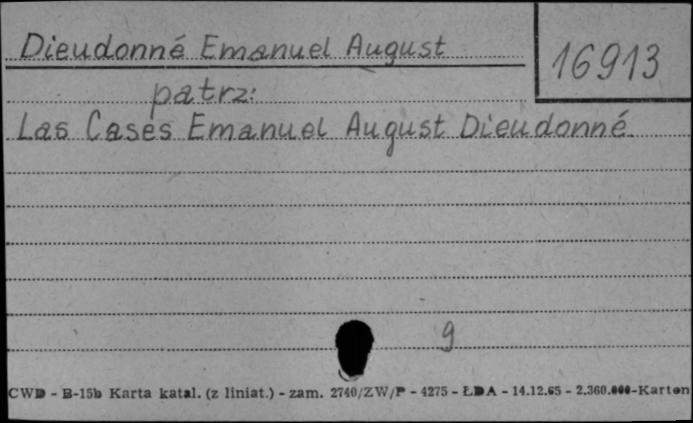 Dieudonné Emanuel August
16913
patrz:
Las Cases Emanuel August Dieudonné.
9
CWD - B-15b Karta katal. (z liniat.) - zam. 2740/ZW/P - 4275 - ŁDA - 14.12.65 - 2.360.000-Karton